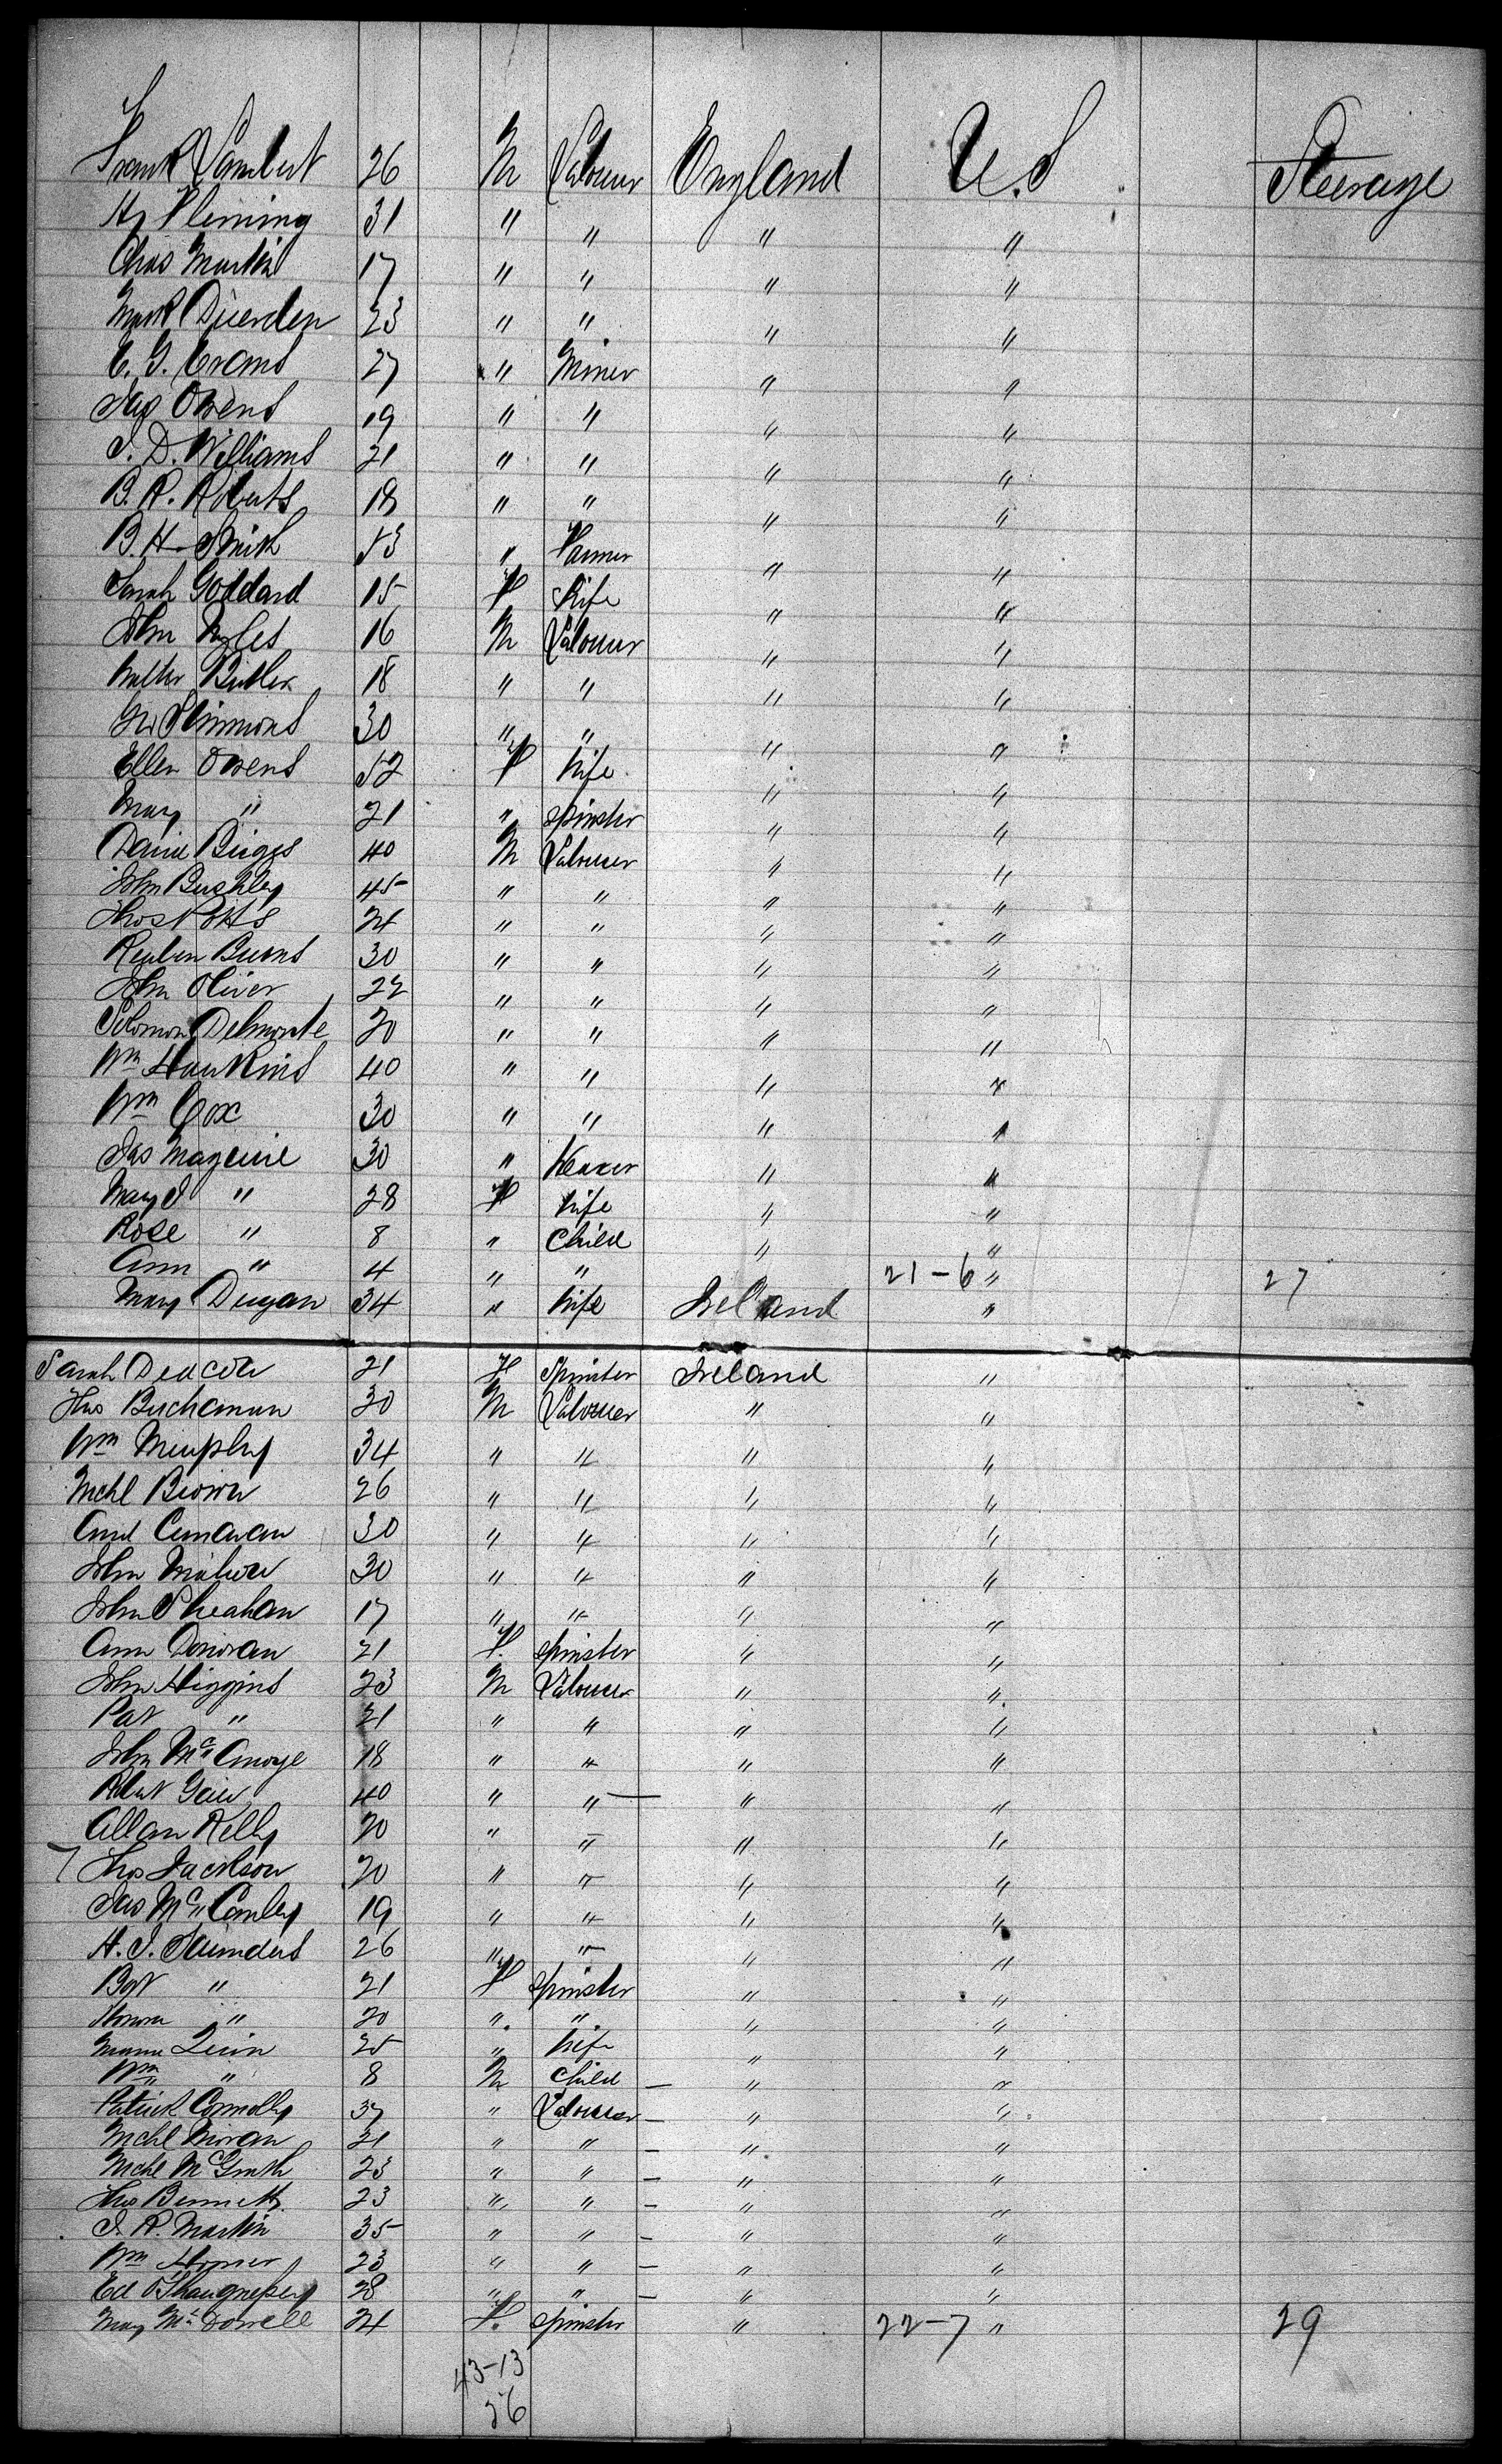 Frank Lambert 26 M Labourer England U.S Steerage
Hy Fleming 31 " " " "
Chas Martin 17 " " " "
Mark Duerden 23 " " " "
E. G. Evans 27 " Miner " "
Jas Owens 19 " " " "
J. D. Williams 21 " " " "
B. R. Roberts 18 " " " "
B. H. Smith 53 " Farmer " "
Sarah Goddard 15 F Wife " "
John Myles 16 M Labourer " "
Walter Butler 18 " " " "
Simmons 30 " " " "
Ellen Owens 52 F Wife " "
Mary " 21 " Spinster " "
Daniel Biggs 40 M Labourer " "
John Bushby 45 " " " "
Thos Potts 24 " " " "
Reuben Burns 30 " " " "
John Oliver 22 " " " "
Solomon Delmonte 20 " " " "
Wm Hawkins 40 " " " "
Wm Cox 30 " " " "
Jas Maguire 30 " Weaver " "
Mary J " 28 F Wife " "
Rose " 8 " Child " "
Ann " 4 " " " 21-6 " 27
Mary Dugan 34 " Wife Ireland "
Sarah Deacon 21 F Spinster Ireland "
Thos Buchanan 30 M Labourer " "
Wm Murphy 34 " " " "
Michl Brown 26 " " " "
30 " " " "
John 30 " " " "
John Sheahan 17 " " " "
Ann Donovan 21 F. Spinster " "
John Higgins 23 M Labourer " "
Pat " 21 " " " "
John 18 " " " "
Robt 40 " " " "
Allan Kelly 20 " " " "
Thos Jackson 20 " " " "
Jas 19 " " " "
H. J. Saunders 26 " " " "
Bgt " 21 F Spinster " "
Honora " 20 " " " "
Quin 25 " Wife " "
Wm " 8 M Child " "
Patrick Connolly 37 " Labourer " "
Michl Moran 21 " " " "
Michl McGrath 23 " " " "
Thos Bennett 23 " " " "
J. R. Martin 35 " " " "
Wm 23 " " " "
Ed O'Shaugnessy 28 " " " "
Mary McDowell 24 F. Spinster " 22-7 " 29
43-13
56